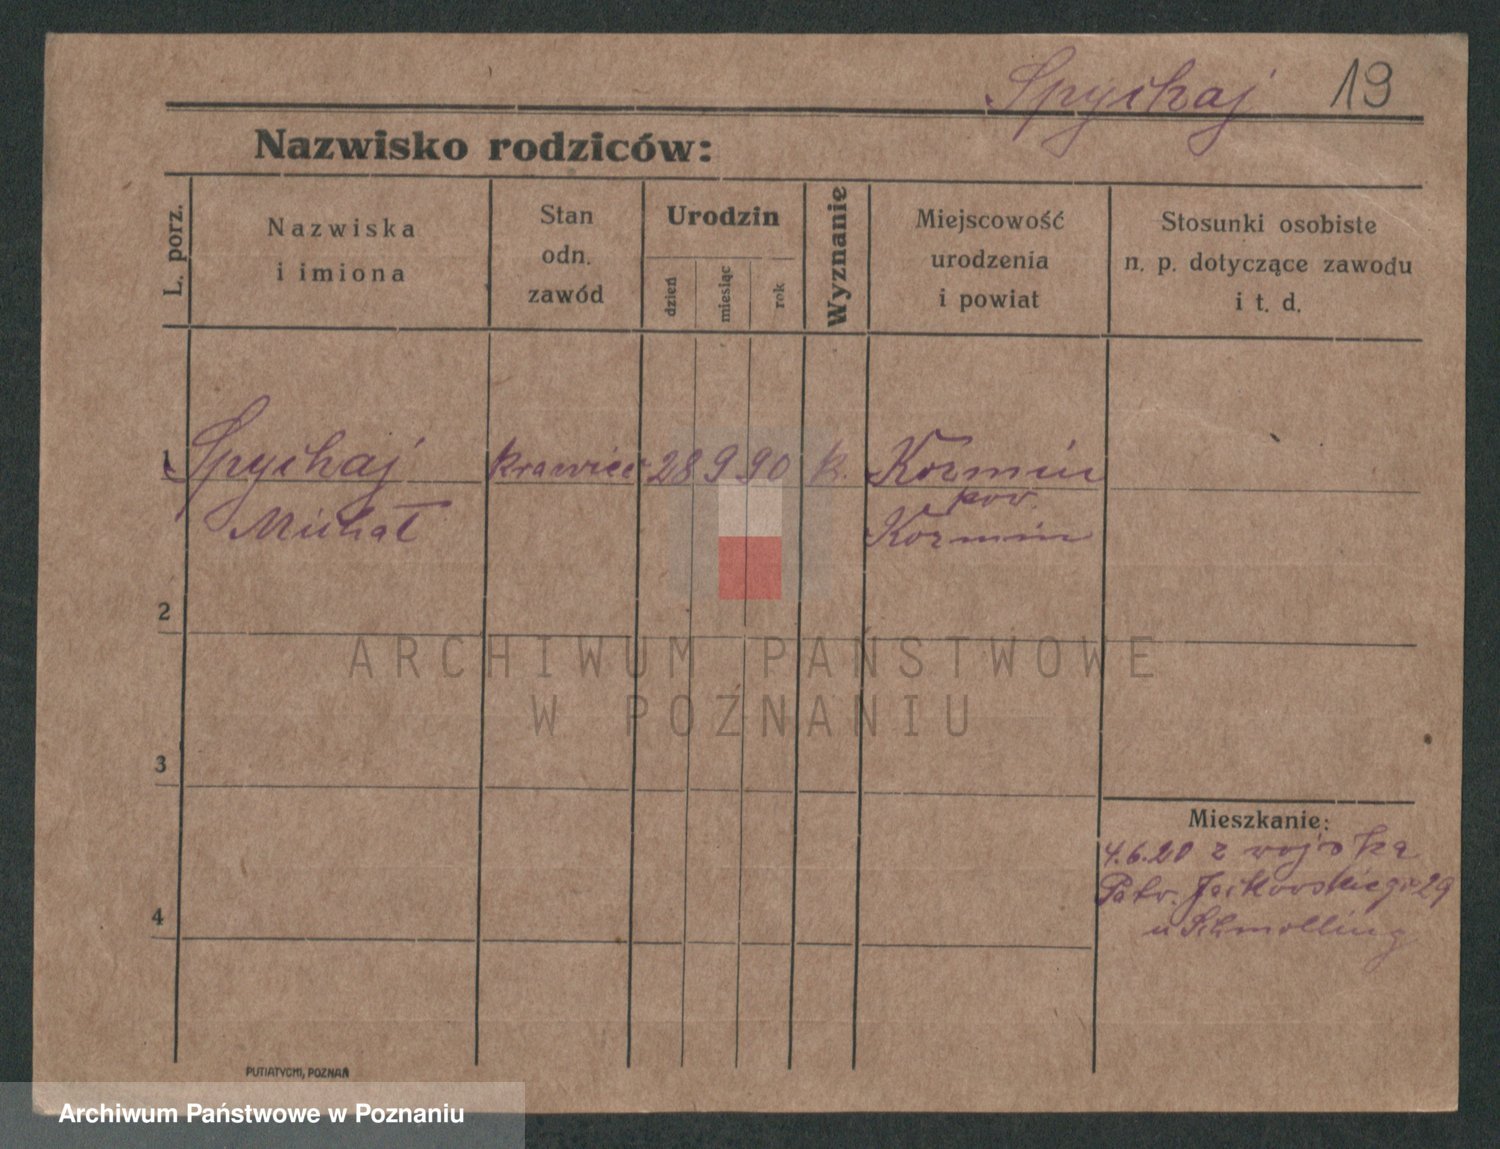 Spychaj 19
Nazwisko rodziców:
L. porz.
Nazwiska
i imiona
Stan
odn.
zawód
Urodzin
dzień
miesiąc
rok
Wyznanie
Miejscowość
urodzenia
i powiat
Stosunki osobiste
n. p. dotyczące zawodu
i t. d.
1 Spychaj krawiec 28 9 90 k. Kozmin
pow.
Michał Kozmin
2
ARCHIWUM PAŃSTWOWE
W POZNANIU
3
Mieszkanie:
4.6.20 z wojska
Patr. Jackowskiego 29
u Schmolling
4
PUTIATYCKI, POZNAŃ
Archiwum Państwowe w Poznaniu